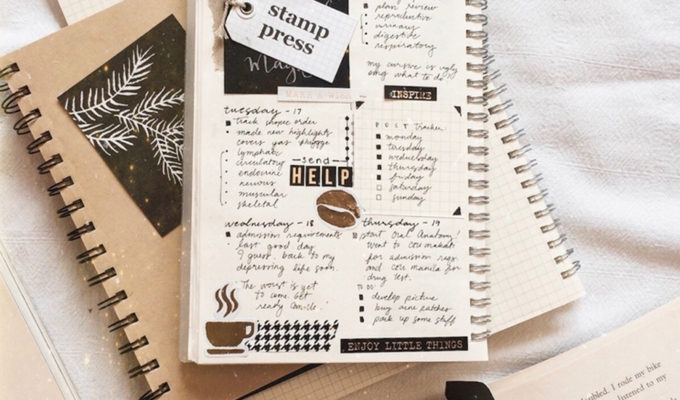 stamp
press
Magic
plan review
reproductive
urinary
digestive
respiratory
my cursive is ugly
omg what to do
MAKE A WISH
INSPIRE
tuesday - 17
track shopee order
made new highlights
covers
lymphatic
circulatory
endocrine
nervous
muscular
skeletal
send
HELP
POST tracker
monday
tuesday
wednesday
thursday
friday
saturday
sunday
wednesday - 18
admission requirements
last good day
I guess. back to my
depressing life soon.
"The worst is yet
to come. Get
ready
thursday - 19
start Oral Anatomy!
went to
for admission reqs.
and ceu manila for
drug test.
TO DO:
develop picture
buy acne patches
pack up some stuff
ENJOY LITTLE THINGS
I rode my bike
listened to my